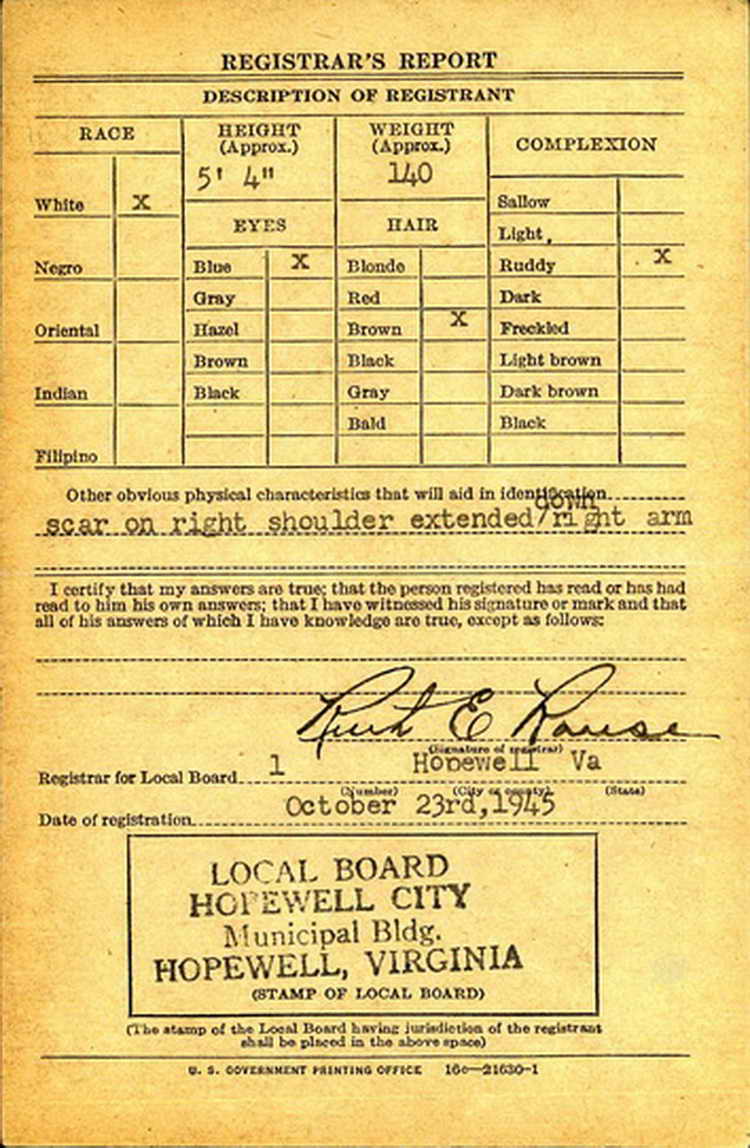 REGISTRAR'S REPORT
DESCRIPTION OF REGISTRANT
RACE
HEIGHT
(Approx.)
WEIGHT
(Approx.)
COMPLEXION
5' 4"
140
White X
EYES
HAIR
Sallow
Light
Negro
Blue X
Blonde
Ruddy X
Gray
Red
Dark
Oriental
Hazel
Brown X
Freckled
Brown
Black
Light brown
Indian
Black
Gray
Dark brown
Bald
Black
Filipino
Other obvious physical characteristics that will aid in identification
down
scar on right shoulder extended/right arm
I certify that my answers are true; that the person registered has read or has had
read to him his own answers; that I have witnessed his signature or mark and that
all of his answers of which I have knowledge are true, except as follows:
E
(Signature of registrar)
Registrar for Local Board 1 Hopewell Va
(Number) (City or county) (State)
Date of registration October 23rd,1945
LOCAL BOARD
HOPEWELL CITY
Municipal Bldg.
HOPEWELL, VIRGINIA
(STAMP OF LOCAL BOARD)
(The stamp of the Local Board having jurisdiction of the registrant
shall be placed in the above space)
U. S. GOVERNMENT PRINTING OFFICE 16c—21630-1